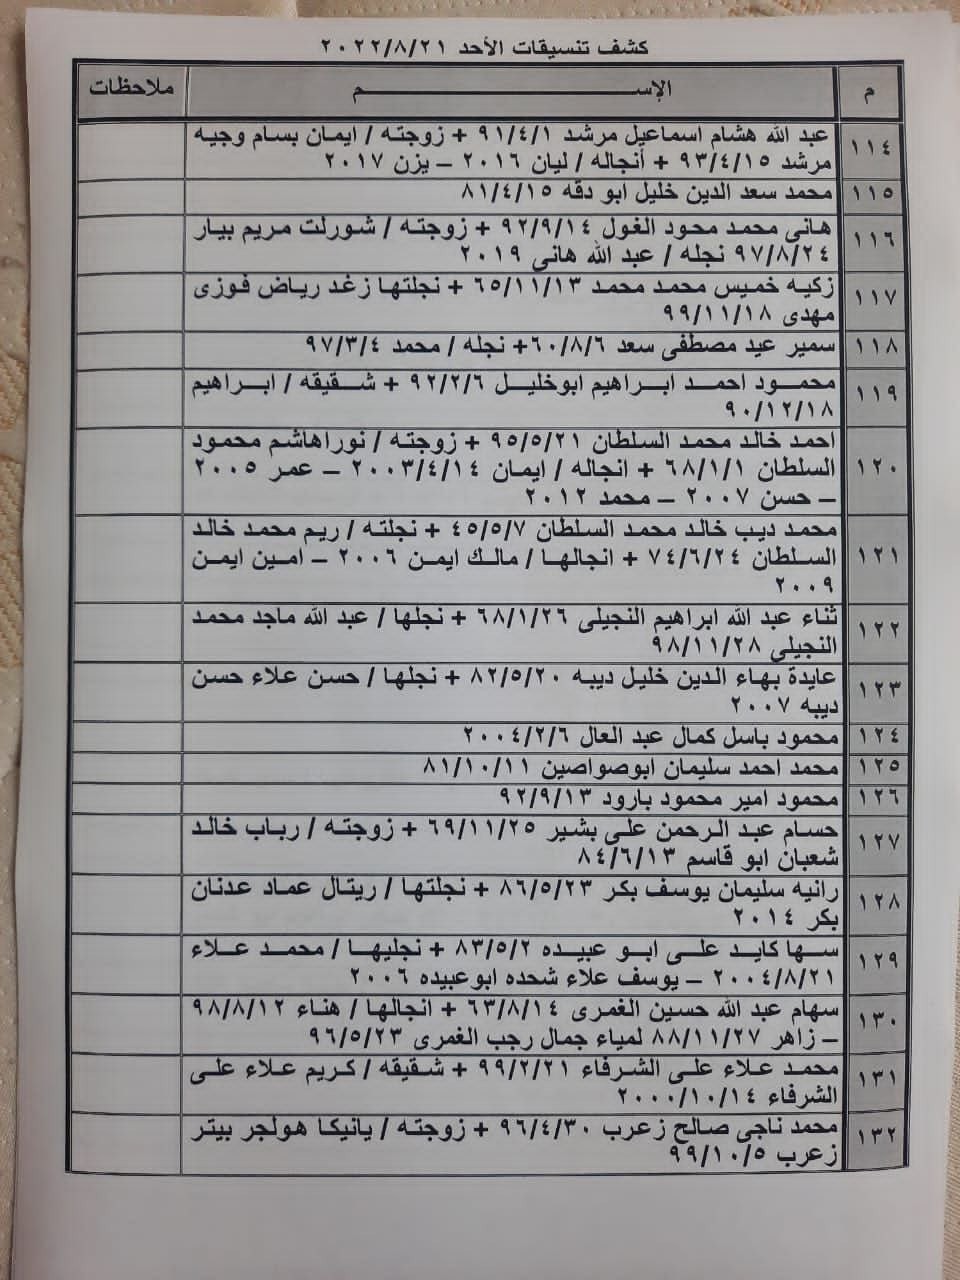 كشف تنسيقات الأحد ٢٠٢٢/٨/٢١
م الإســـــم ملاحظات
١١٤ عبد الله هشام اسماعيل مرشد ٩١/٤/١ + زوجته / ايمان بسام وجيه
مرشد ٩٣/٤/١٥ + أنجاله / ليان ٢٠١٦ – يزن ٢٠١٧
١١٥ محمد سعد الدين خليل ابو دقه ٨١/٤/١٥
١١٦ هانى محمد محود الغول ٩٢/٩/١٤ + زوجته / شورلت مريم بيار
٩٧/٨/٢٤ نجله / عبد الله هانى ٢٠١٩
١١٧ زكيه خميس محمد محمد ٦٥/١١/١٣ + نجلتها زغد رياض فوزى
مهدى ٩٩/١١/١٨
١١٨ سمير عيد مصطفى سعد ٦٠/٨/٦+ نجله / محمد ٩٧/٣/٤
١١٩ محمود احمد ابراهيم ابوخليل ٩٢/٢/٦ + شقيقه / ابراهيم
٩٠/١٢/١٨
١٢٠ احمد خالد محمد السلطان ٩٥/٥/٢١ + زوجته / نوراهاشم محمود
السلطان ٦٨/١/١ + انجاله / ايمان ٢٠٠٣/٤/١٤ – عمر ٢٠٠٥
– حسن ٢٠٠٧ – محمد ٢٠١٢
١٢١ محمد ديب خالد محمد السلطان ٤٥/٥/٧ + نجلته / ريم محمد خالد
السلطان ٧٤/٦/٢٤ + انجالها / مالك ايمن ٢٠٠٦ – امين ايمن
٢٠٠٩
١٢٢ ثناء عبد الله ابراهيم النجيلى ٦٨/١/٢٦ + نجلها / عبد الله ماجد محمد
النجيلى ٩٨/١١/٢٨
١٢٣ عايدة بهاء الدين خليل ديبه ٨٢/٥/٢٠ + نجلها / حسن علاء حسن
ديبه ٢٠٠٧
١٢٤ محمود باسل كمال عبد العال ٢٠٠٤/٢/٦
١٢٥ محمد احمد سليمان ابوصواصين ٨١/١٠/١١
١٢٦ محمود امير محمود بارود ٩٢/٩/١٣
١٢٧ حسام عبد الرحمن على بشير ٦٩/١١/٢٥ + زوجته / رباب خالد
شعبان ابو قاسم ٨٤/٦/١٣
١٢٨ رانيه سليمان يوسف بكر ٨٦/٥/٢٣ + نجلتها / ريتال عماد عدنان
بكر ٢٠١٤
١٢٩ سها كايد على ابو عبيده ٨٣/٥/٢ + نجليها / محمد علاء
٢٠٠٤/٨/٢١ – يوسف علاء شحده ابوعبيده ٢٠٠٦
١٣٠ سهام عبد الله حسين الغمرى ٦٣/٨/١٤ + انجالها / هناء ٩٨/٨/١٢
– زاهر ٨٨/١١/٢٧ لمياء جمال رجب الغمرى ٩٦/٥/٢٣
١٣١ محمد علاء على الشرفاء ٩٩/٢/٢١ + شقيقه / كريم علاء على
الشرفاء ٢٠٠٠/١٠/١٤
١٣٢ محمد ناجى صالح زعرب ٩٦/٤/٣٠ + زوجته / يانيكا هولجر بيتر
زعرب ٩٩/١٠/٥